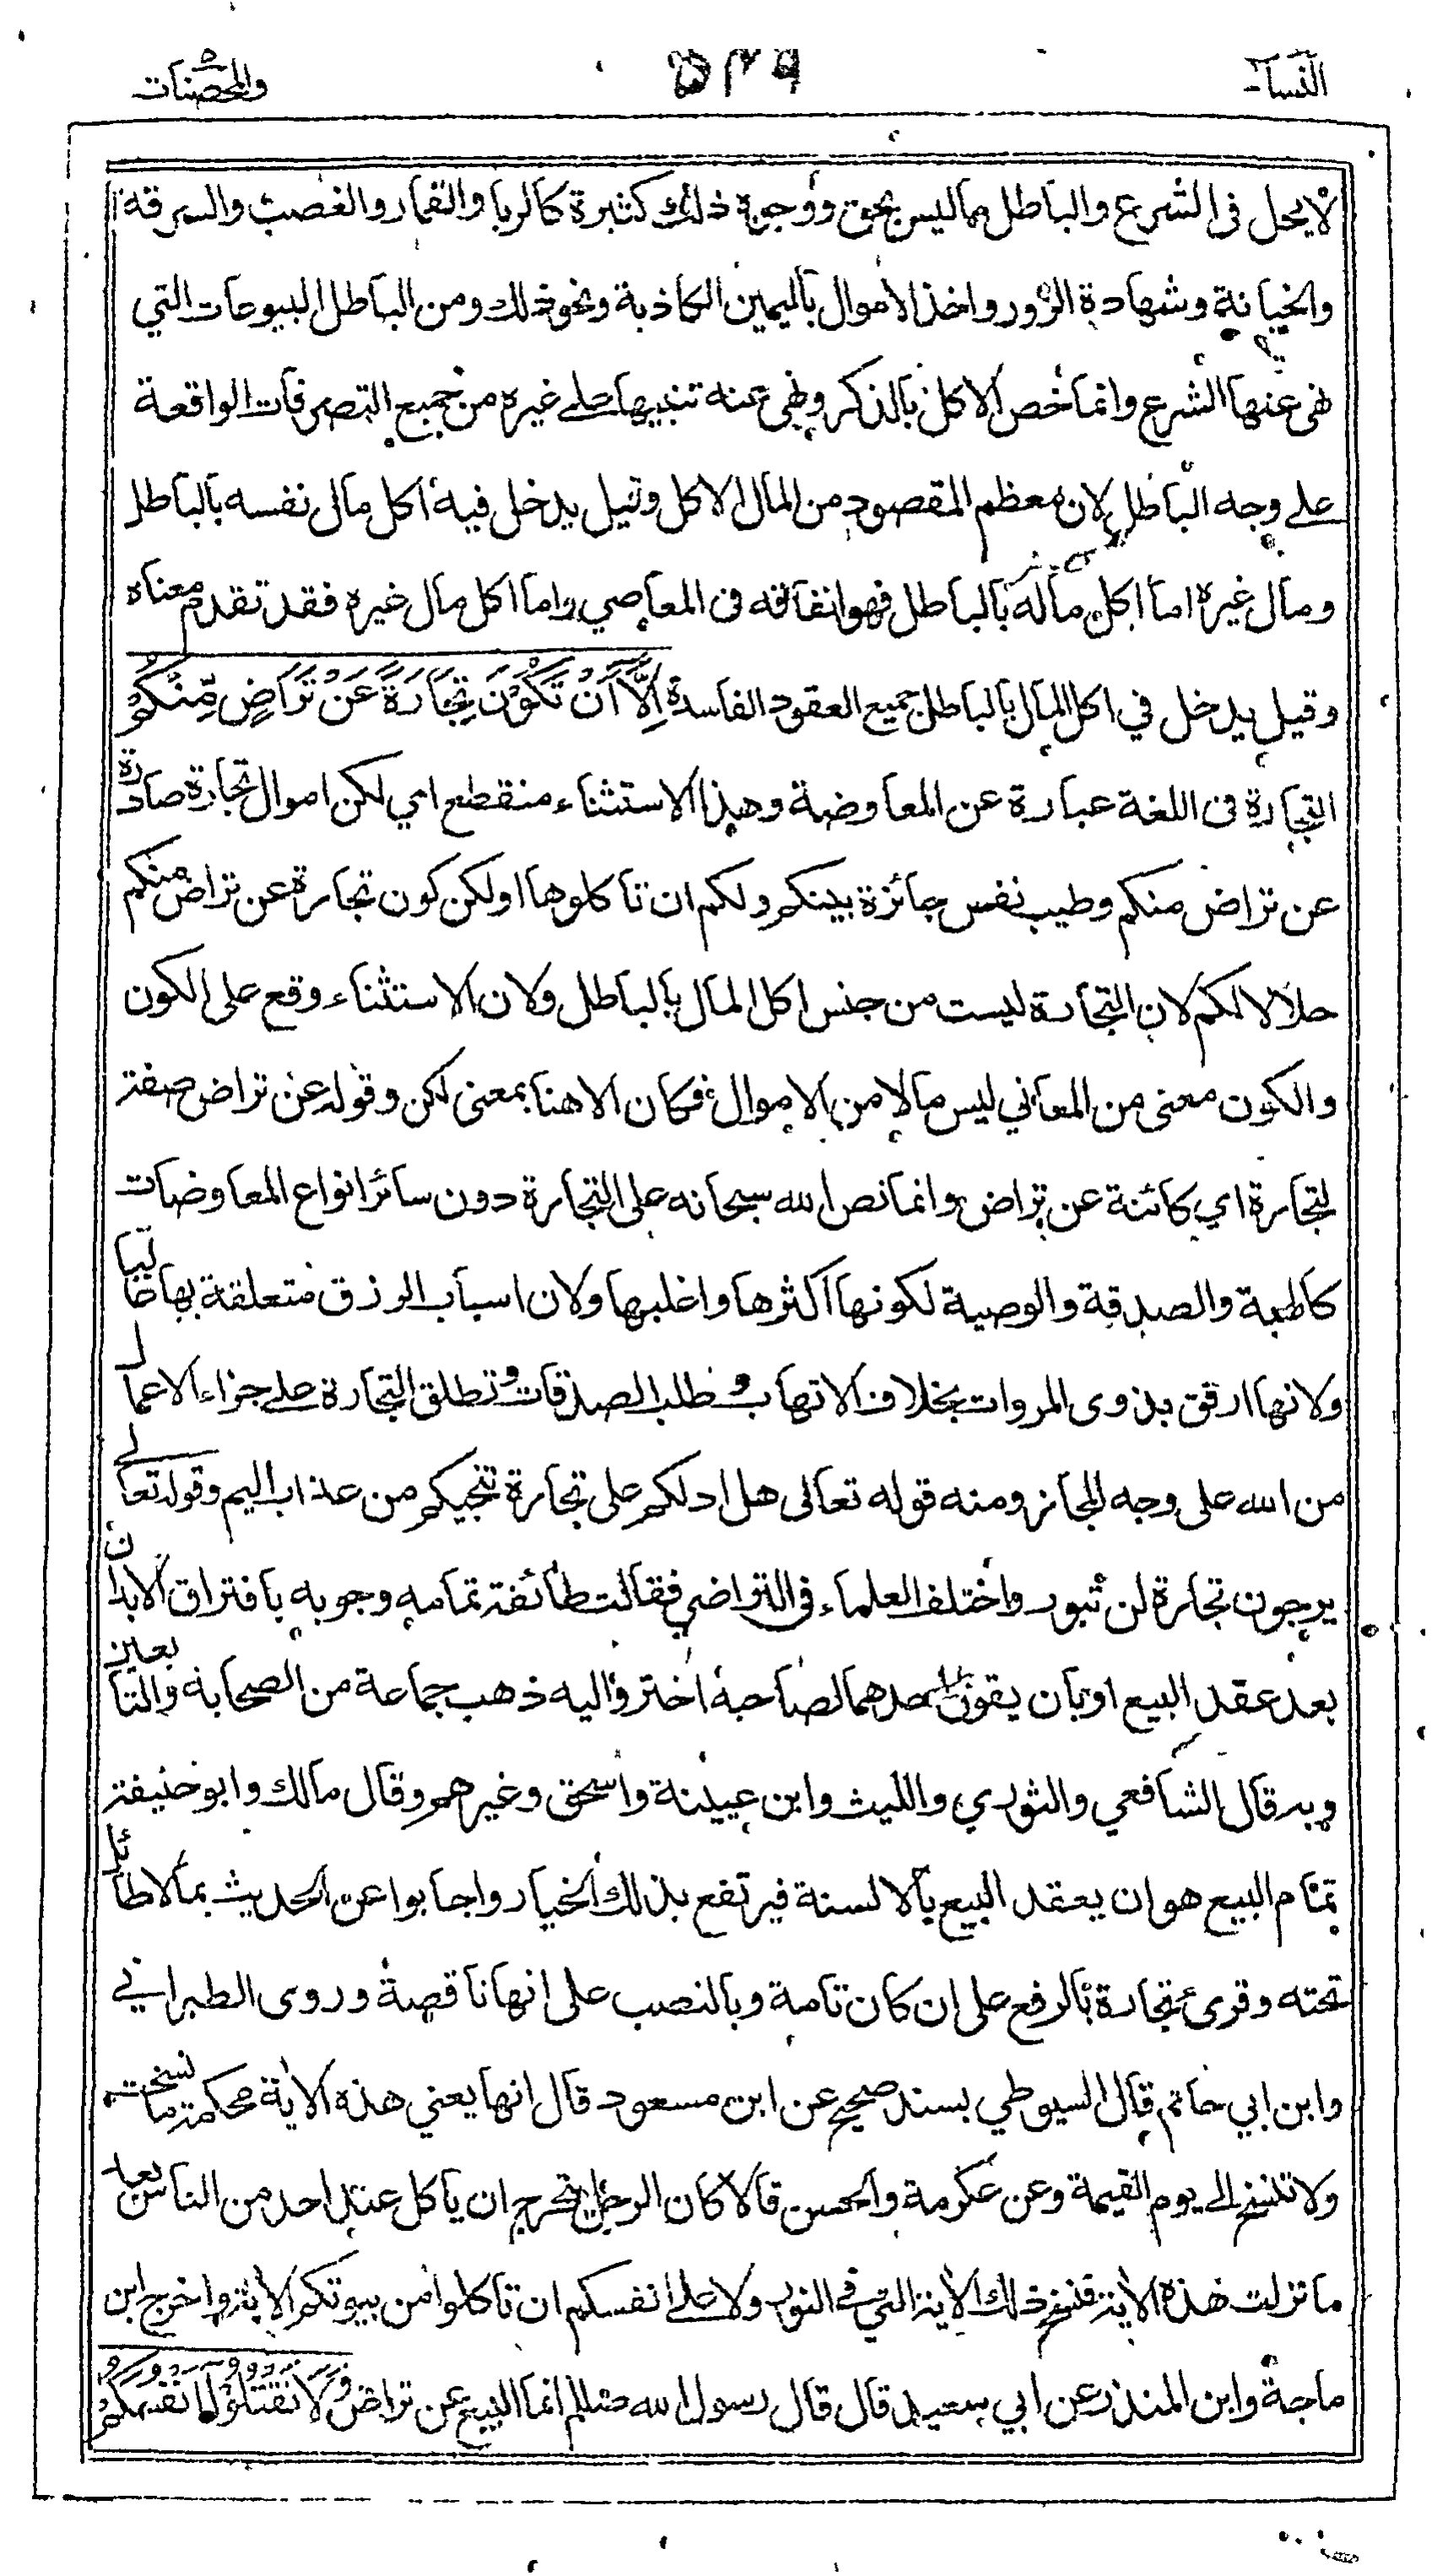 النسآء
والمحصنٰت
لا يحل فى الشرع والباطل ما ليس بحق ووجوه ذلك كثيرة كالربا والقمار والغصب والسرقة
والخيانة وشهادة الزور واخذ الاموال باليمين الكاذبة ونحو ذلك ومن الباطل البيوعات التي
نهى عنها الشرع وانما خص الاكل بالذكر ونهى عنه تنبيها على غيره من جميع التصرفات الواقعة
على وجه الباطل لان معظم المقصود من المال الاكل وقيل يدخل فيه اكل مال نفسه بالباطل
ومال غيره اما اكل ماله بالباطل فهو انفاقه فى المعاصي واما اكل مال غيره فقد تقدم معناه
وقيل يدخل في اكل المال بالباطل جميع العقود الفاسدة اِلَّا اَنْ تَكُوْنَ تِجَارَةً عَنْ تَرَاضٍ مِّنْكُمْ
التجارة فى اللغة عبارة عن المعاوضة وهذا الاستثناء منقطع اي لكن اموال تجارة صادرة
عن تراض منكم وطيب نفس جائزة بينكم ولكم ان تاكلوها او لكن كون تجارة عن تراض منكم
حلالا لكم لان التجارة ليست من جنس اكل المال بالباطل ولان الاستثناء وقع على الكون
والكون معنى من المعاني ليس مالا من الاموال فكان الا هنا بمعنى لكن وقوله عن تراض صفة
لتجارة اي كائنة عن تراض وانما نص الله سبحانه على التجارة دون سائر انواع المعاوضات
كالهبة والصدقة والوصية لكونها اكثرها واغلبها ولان اسباب الرزق متعلقة بها غالبا
ولانها ارفق بذوى المروات بخلاف الاتهاب وطلب الصدقات وتطلق التجارة على جزاء الاعمال
من الله على وجه المجاز ومنه قوله تعالى هل ادلكم على تجارة تنجيكم من عذاب اليم وقوله تعالى
يرجون تجارة لن تبور واختلف العلماء فى التراضي فقالت طائفة تمامه وجوبه بافتراق الابدان
بعد عقد البيع او بان يقول احدهما لصاحبه اختر واليه ذهب جماعة من الصحابة والتابعين
وبه قال الشافعي والثوري والليث وابن عيينة واسحق وغيرهم وقال مالك وابو حنيفة
تمام البيع هو ان يعقد البيع بالالسنة فيرتفع بذلك الخيار واجابوا عن الحديث بما لا طائل
تحته وقرئ تجارة بالرفع على ان كان تامة وبالنصب على انها ناقصة وروى الطبراني
وابن ابي حاتم قال السيوطي بسند صحيح عن ابن مسعود قال انها يعني هذه الاية محكمة ما نسخت
ولا تنسخ الى يوم القيمة وعن عكرمة والحسن قالا كان الرجل يتحرج ان ياكل عند احد من الناس بعد
ما نزلت هذه الاية فنسخ ذلك الاية التي في النور ولا على انفسكم ان تاكلوا من بيوتكم الاية واخرج ابن
ماجة وابن المنذر عن ابي سعيد قال قال رسول الله صللم انما البيع عن تراض وَلَا تَقْتُلُوْا اَنْفُسَكُمْ